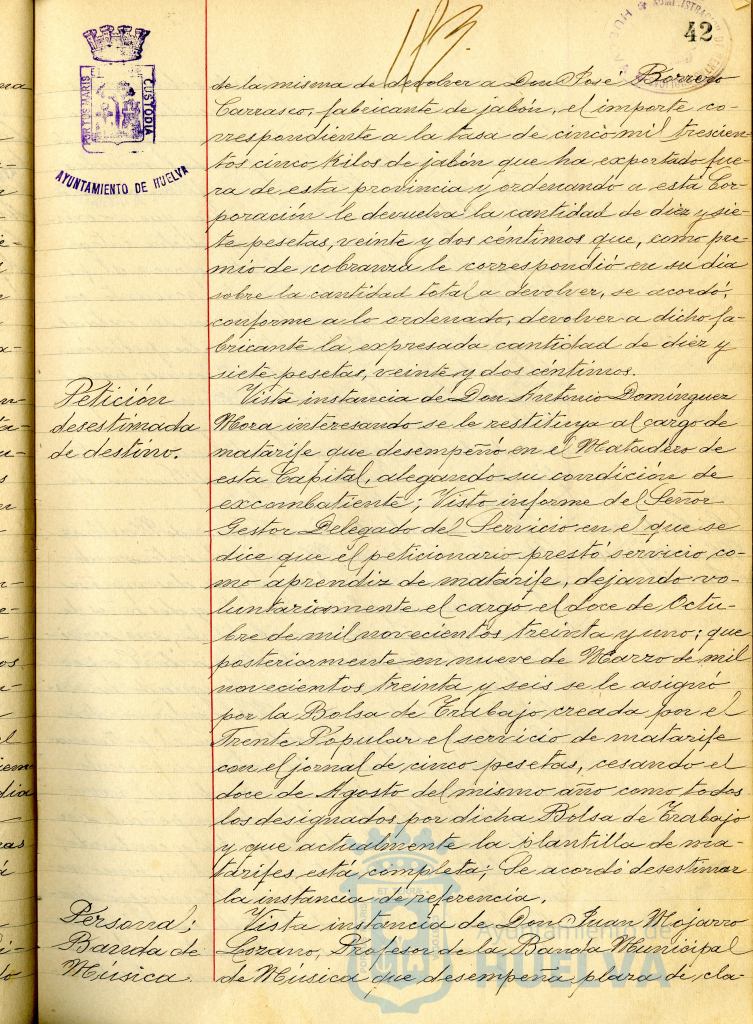 42
PORTUS MARIS
CUSTODIA
AYUNTAMIENTO DE HUELVA
de la misma de devolver a Don José Borrero
Carrasco, fabricante de jabón, el importe co-
rrespondiente a la tasa de cinco mil trescien-
tos cinco kilos de jabón que ha exportado fue-
ra de esta provincia y ordenando a esta Cor-
poración le devuelva la cantidad de diez y sie-
te pesetas, veinte y dos céntimos que, como pre-
mio de cobranza le correspondió en su dia
sobre la cantidad total a devolver, se acordó,
conforme a lo ordenado, devolver a dicho fa-
bricante la expresada cantidad de diez y
siete pesetas, veinte y dos céntimos.
Petición
desestimada
de destino.
Vista instancia de Don Antonio Domínguez
Mora interesando se le restituya al cargo de
matarife que desempeñó en el Matadero de
esta Capital, alegando su condición de
excombatiente; Visto informe del Señor
Gestor Delegado del Servicio en el que se
dice que el peticionario prestó servicio co-
mo aprendiz de matarife, dejando vo-
luntariamente el cargo el doce de Octu-
bre de mil novecientos treinta y uno; que
posteriormente en nueve de Marzo de mil
novecientos treinta y seis se le asignó
por la Bolsa de Trabajo, creada por el
Frente Popular el servicio de matarife
con el jornal de cinco pesetas, cesando el
doce de Agosto del mismo año como todos
los designados por dicha Bolsa de Trabajo
y que actualmente la plantilla de ma-
tarifes está completa; Se acordó desestimar
la instancia de referencia.
Personal:
Banda de
Música.
Vista instancia de Don Juan Mojarro
Lozano, Profesor de la Banda Municipal
de Música que desempeña plaza de cla-
Ayuntamiento de
HUELVA